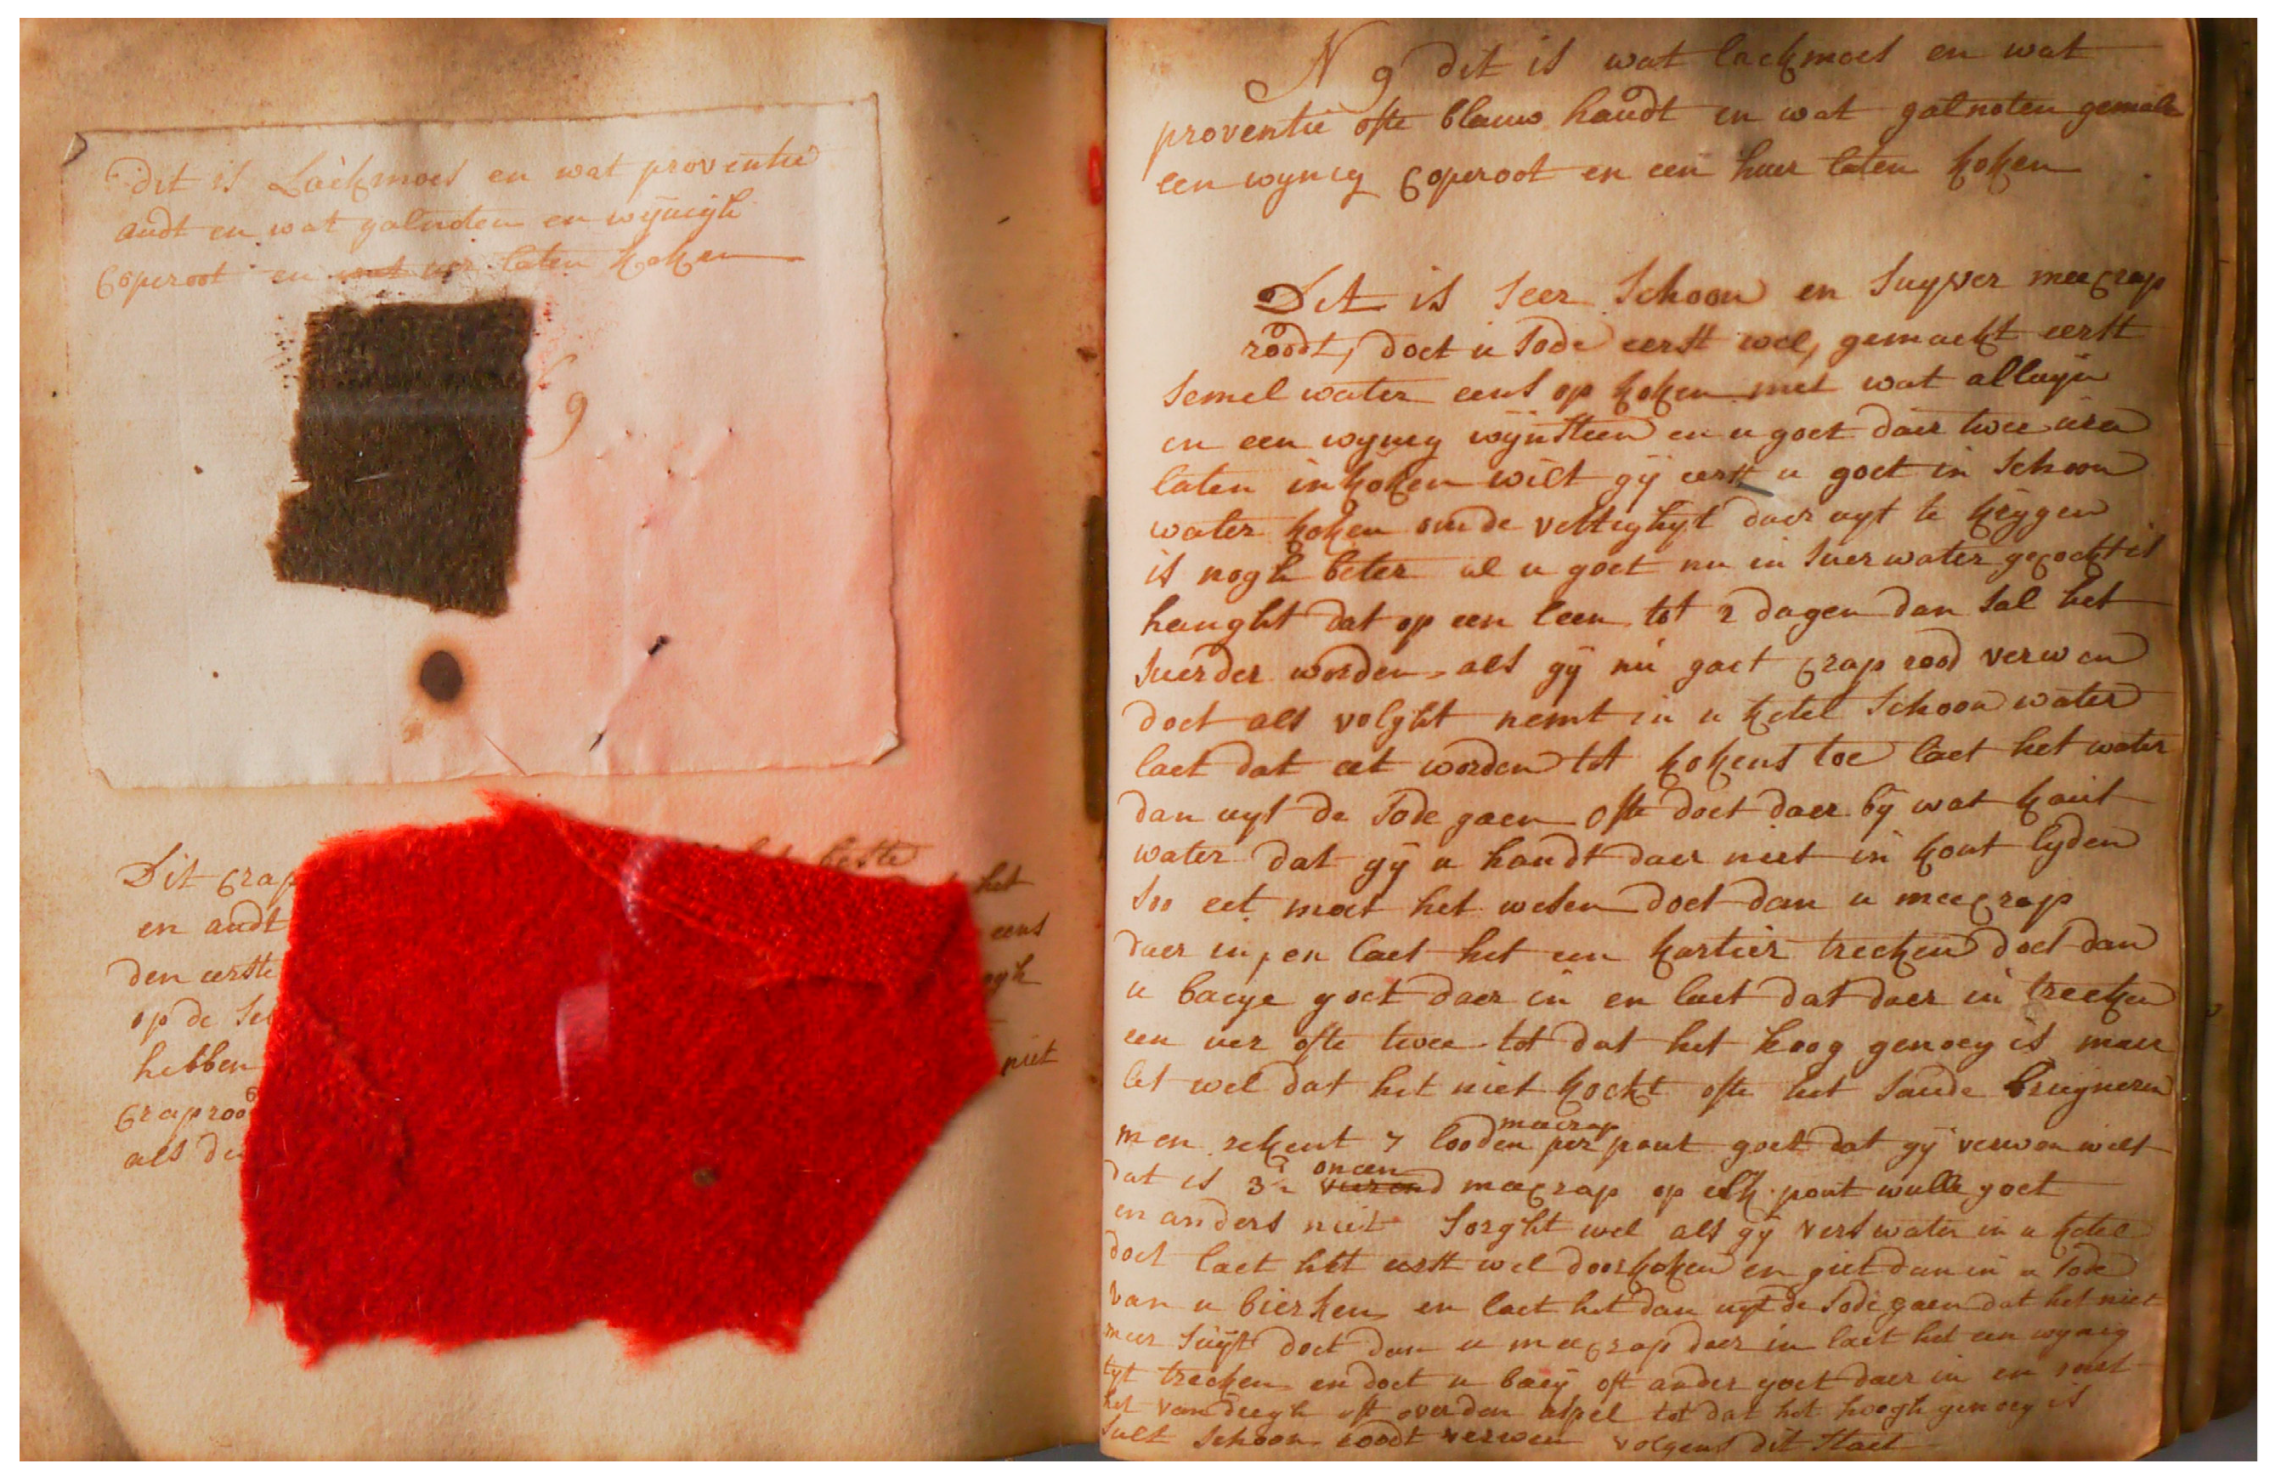 dit is Lackmoes en wat proventie
audt en wat galnoten en wijnigh
Coperoot en met uer laten koken
9
Dit crap
en audt
den eerste
op de
hebben
Craproo
als de
het beste
het
eens
ogh
niet
N 9 dit is wat lackmoes en wat
proventie ofte blauw haudt en wat galnoten gemale
een wynig Coperoot en een huer laten koken
Dit is seer schoon en suyver meecrap
roodt, doet u sode eerst wel, gemackt eerst
semel water eens op koken met wat alluyn
en een wyneg wynsteen en u goet daer twee ura
laten in koken wilt gij eerst u goet in schoon
water koken om de vettighyt daer uyt te krygen
is nogh beter al u goet nu in suer water gecockt is
hanght dat op een leen tot 2 dagen dan sal het
suerder worden, als gij nu gaet crap rood verwen
doet als volght nemt in u ketel schoon water
laet dat eet worden tot kokens toe laet het water
dan uyt de sode gaen ofte doet daer bij wat kaut
water dat gij u handt daer niet in kont lyden
soo eet moet het wesen doet dan u meecrap
daer in, en laet het een kartier trecken doet dan
u baeye goet daer in en laet dat daer in trecken
een uer ofte twee tot dat het hoog genoeg is maer
let wel dat het niet kockt ofte het saude bruyneren
men rekent 7 looden meecrap per pont goet dat gy verwen wilt
dat is 3½ oncen meecrap op elk pont wulle goet
en anders niet sorght wel als gy vers water in u ketel
doet laet het eerst wel doorkoken en giet dan in u sode
van u bierken en laet het dan uyt de sode gaen dat het niet
meer suyst doet dan u meecrap daer in laet het een wynig
tyt trecken en doet u baey oft ander goet daer in en
het van deegh oft over den aspel tot dat het hoogh genoeg is
sult schoon roodt verwen volgens dit stael